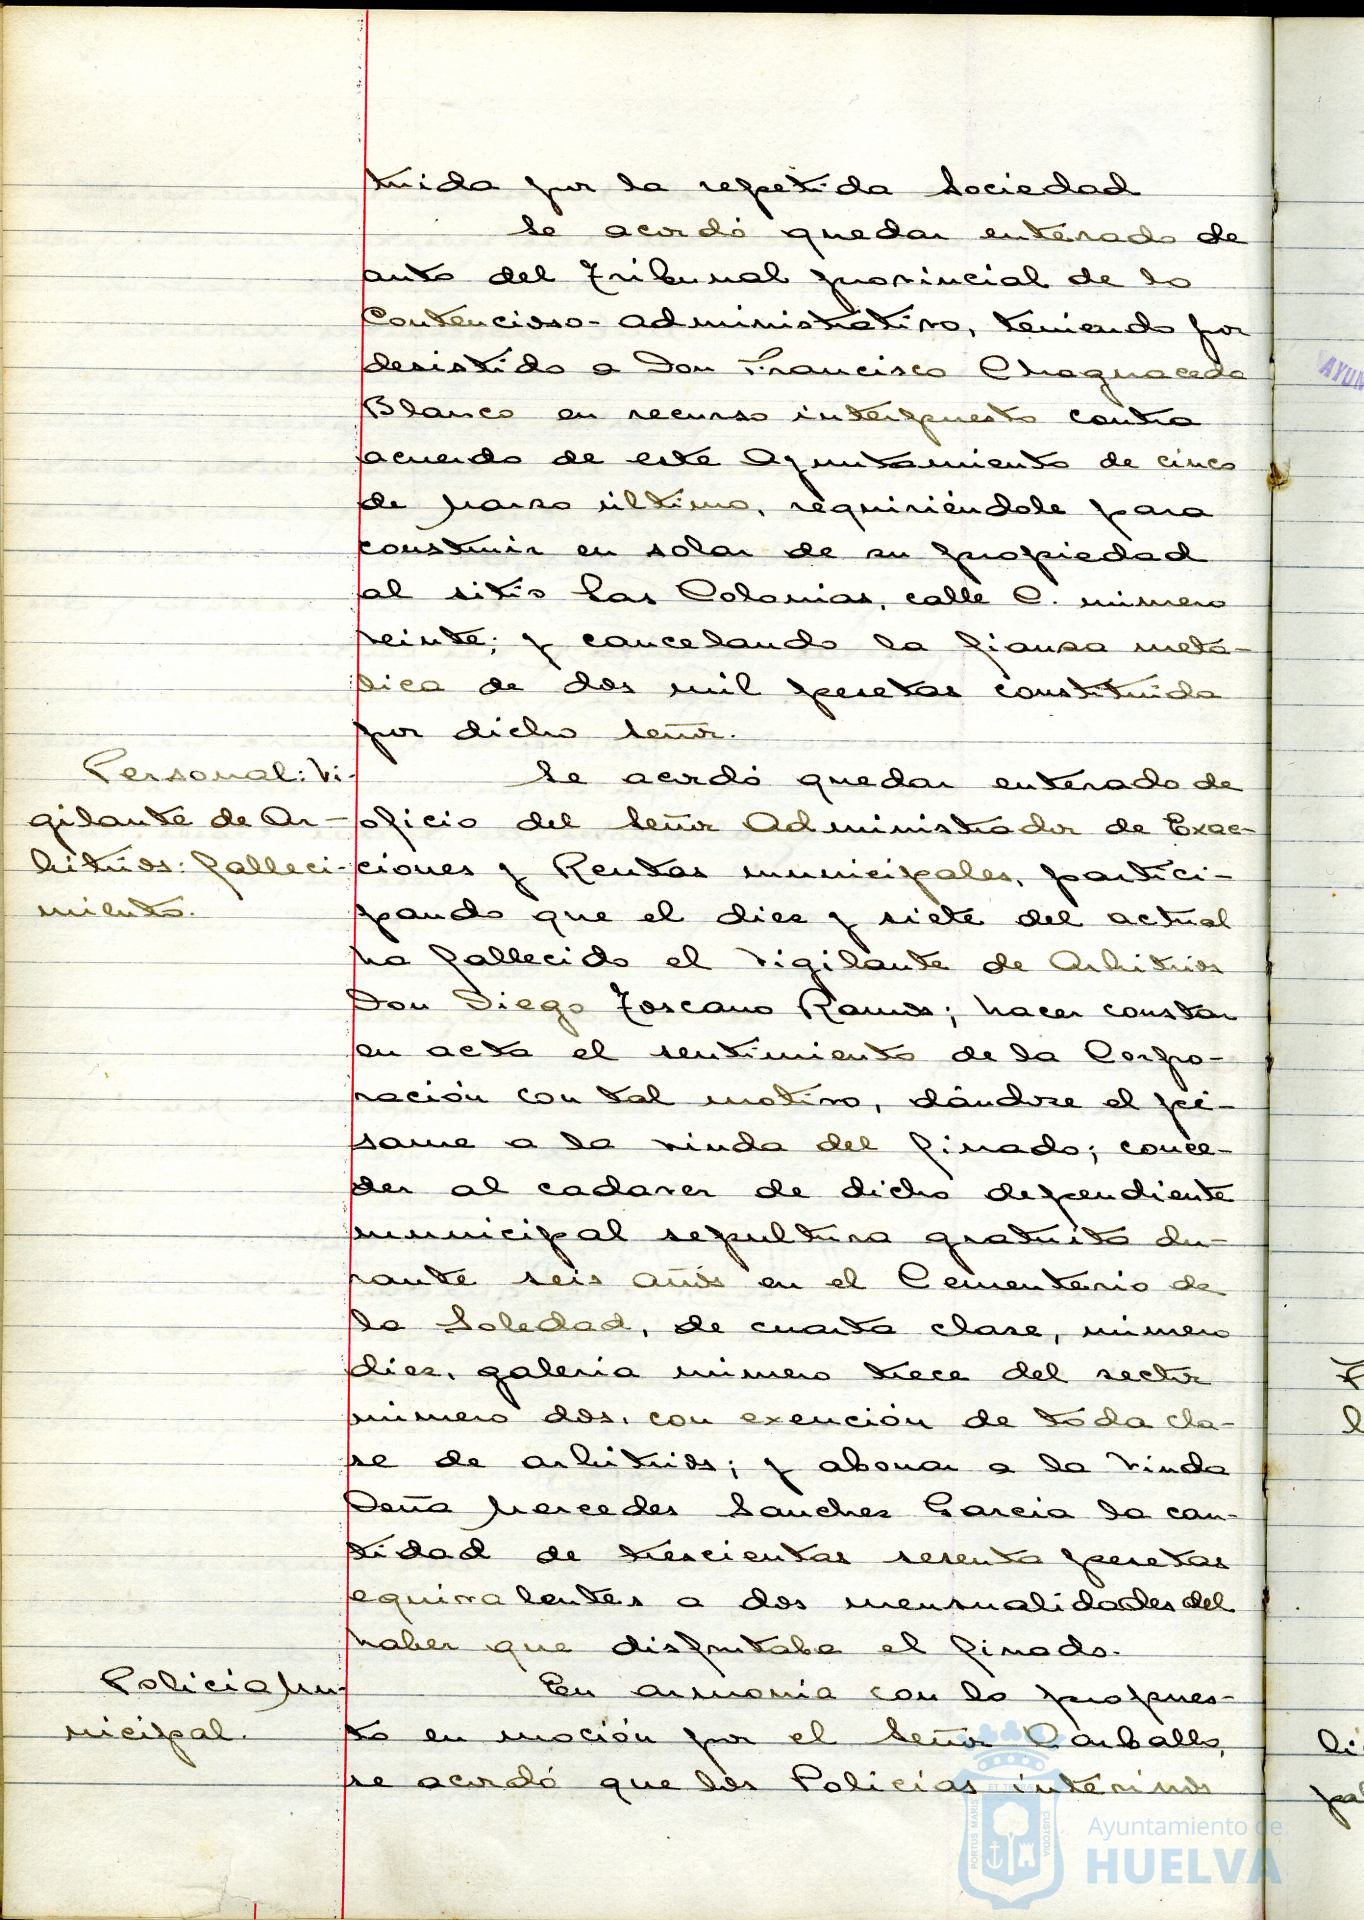 tuida por la repetida Sociedad
Se acordó quedar enterado de
auto del Tribunal provincial de lo
Contencioso-administrativo, teniendo por
desistido a Don Francisco Chaguaceda
Blanco en recurso interpuesto contra
acuerdo de este Ayuntamiento de cinco
de Marzo último, requiriéndole para
construir en solar de su propiedad
al sitio Las Colonias, calle C. número
veinte; y cancelando la fianza metá-
lica de dos mil pesetas constituida
por dicho Señor.
Personal: Vi-
gilante de Ar-
bitrios: falleci-
miento.
Se acordó quedar enterado de
oficio del Señor Administrador de Exac-
ciones y Rentas municipales, partici-
pando que el diez y siete del actual
ha fallecido el Vigilante de Arbitrios
Don Diego Toscano Ramos; hacer constar
en acta el sentimiento de la Corpo-
ración con tal motivo, dándose el pé-
same a la viuda del finado; conce-
der al cadaver de dicho dependiente
municipal sepultura gratuita du-
rante seis años en el Cementerio de
la Soledad, de cuarta clase, número
diez, galeria número trece del sector
número dos, con exención de toda cla-
se de arbitrios; y abonar a la Viuda
Doña Mercedes Sanchez Garcia la can-
tidad de trescientas sesenta pesetas
equivalentes a dos mensualidades del
haber que disfrutaba el finado.
Policia Mu-
nicipal.
En armonia con lo propues-
to en moción por el Señor Carballo,
se acordó que los Policias interinos
AYUN
PORTUS MARIS
ET TERRAE
CUSTODIA
Ayuntamiento de
HUELVA